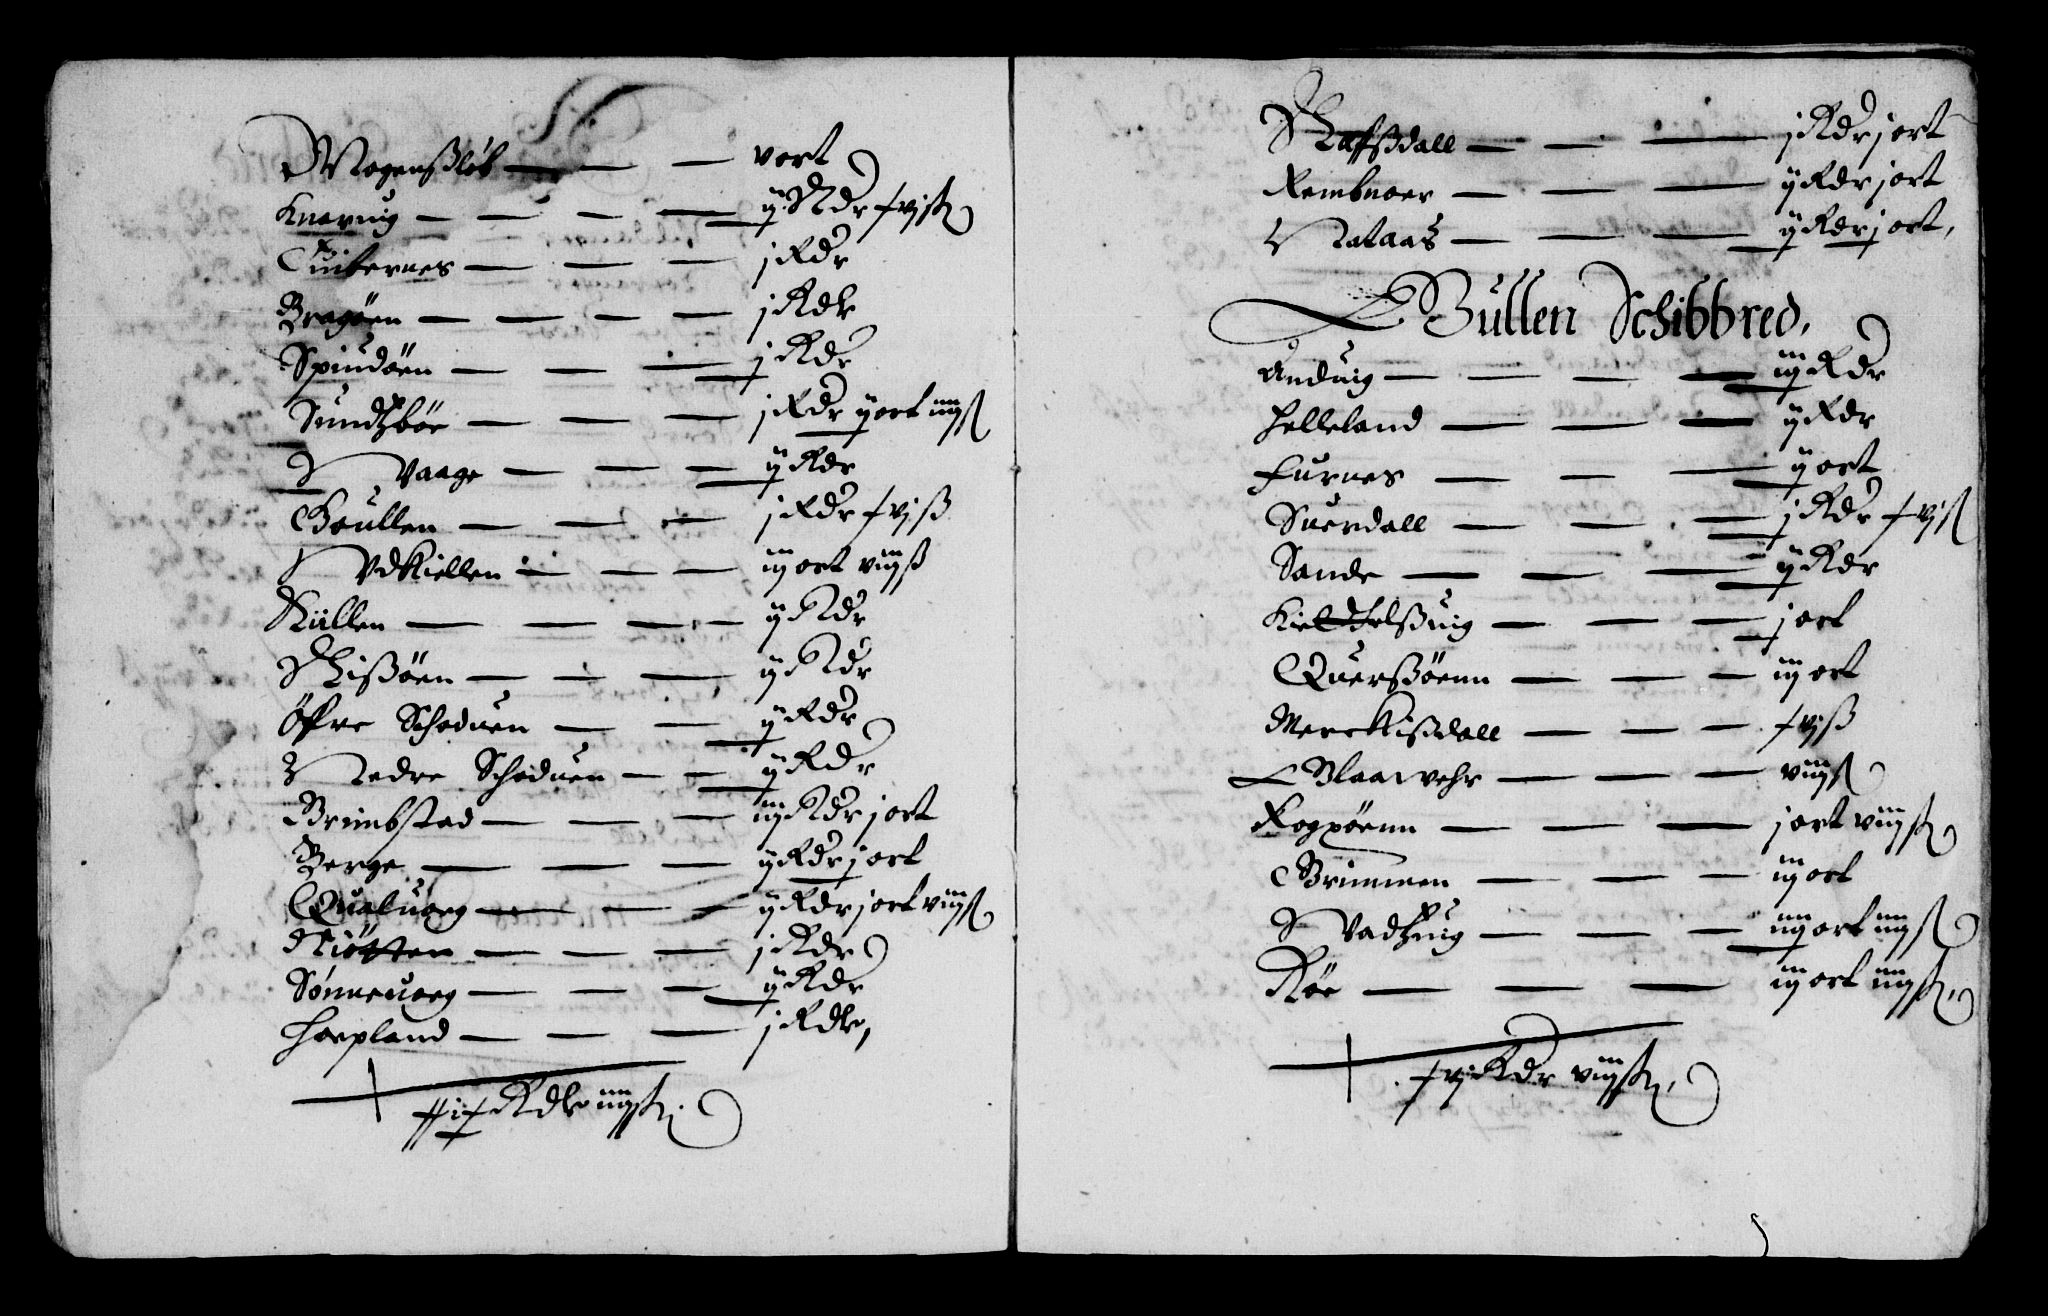 Mogensßløb — — — vort
Knaruig — — — — ij Rdr xvjß
Tuiternes — — — j Rdr
Bragöen — — — — j Rdr
Spindöen — — — j Rdr
Sundtzböe — — — j Rdr ij ort iiijß
Vaage — — — ij Rdr
Goullen — — — j Rdr xvjß
Vdkiellen — — — iij ort viijß
Küllen — — — ij Rdr
Rißöen — — — ij Rdr
Öfre Schoduen — — ij Rdr
Nedre Schoduen — — ij Rdr
Brimbstad — — — iij Rdr j ort
Berge — — — ij Rdr j ort
Qualuog — — — ij Rdr j ort viijß
Niötten — — — j Rdr
Sønneuog — — — ij Rdr
Hopland — — — j Rdr,
Rdr iiijß.
Rafßdall — — — j Rdr j ort
Rembnoer — — — ij Rdr j ort
Nataas — — — ij Rdr j ort,
Gullen Schibbred,
Anduig — — — — iij Rdr
Helleland — — — ij Rdr
Furnes — — — ij ort
Suerdall — — — j Rdr xvjß
Sande — — — ij Rdr
Kieldtelßuig — — — j ort
Querßöenn — — — iij ort
Merckißdall — — — xvjß
Blaawehr — — — viijß
Rogxöenn — — — j ort viijß
Brimmen — — — iij ort
Vadtzuig — — — iiij ort iiijß
Röe — — — iij ort iiijß,
xvj Rdr viijß,